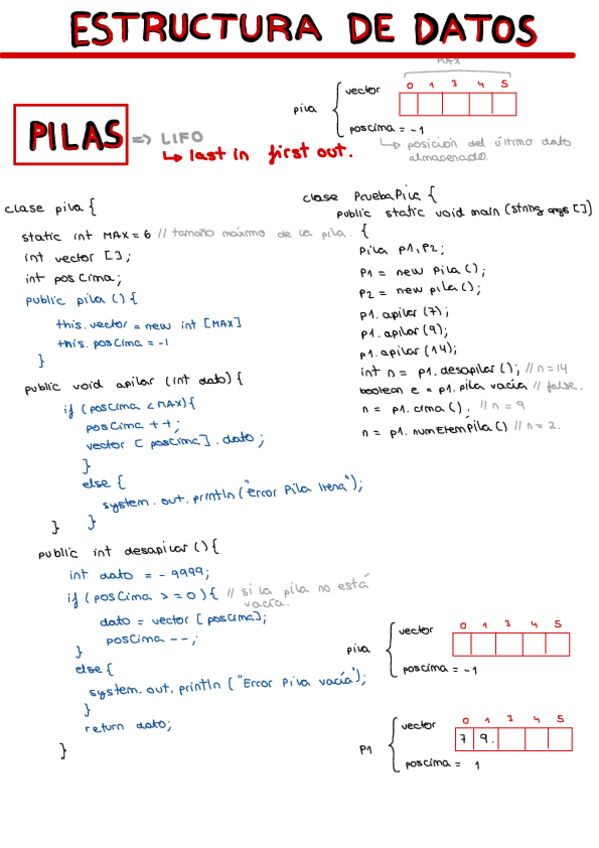 ESTRUCTURA DE DATOS
PILAS => LIFO
↳ last in first out.
MAX
pila { vector 0 1 3 4 5
poscima = -1
↳ posición del último dato
almacenado.
clase pila {
static int MAX = 6 // tamaño máximo de la pila.
int vector [];
int pos Cima;
public pila () {
this.vector = new int [MAX]
this.posCima = -1
}
public void apilar (int dato) {
if (posCima < MAX){
posCima ++;
vector [ posCima] . dato ;
}
else {
system.out.println ("error Pila llena");
}
}
public int desapilar () {
int dato = - 9999;
if ( posCima > = 0 ) { // si la pila no está
vacía.
dato = vector [ posCima];
posCima --;
}
else {
system.out.println ( "Error Pila vacía");
}
return dato;
}
clase PruebaPila {
public static void main (string args [])
{
Pila p1, p2;
p1 = new pila ();
p2 = new pila ();
p1.apilar (7);
p1.apilar (9);
p1.apilar (14);
int n = p1.desapilar (); // n = 14
boolean e = p1.pila vacia // false.
n = p1.cima () ; // n = 9
n = p1.numElemPila () // n = 2.
pila { vector 0 1 3 4 5
poscima = -1
P1 { vector 0 1 3 4 5
7 9.
poscima = 1